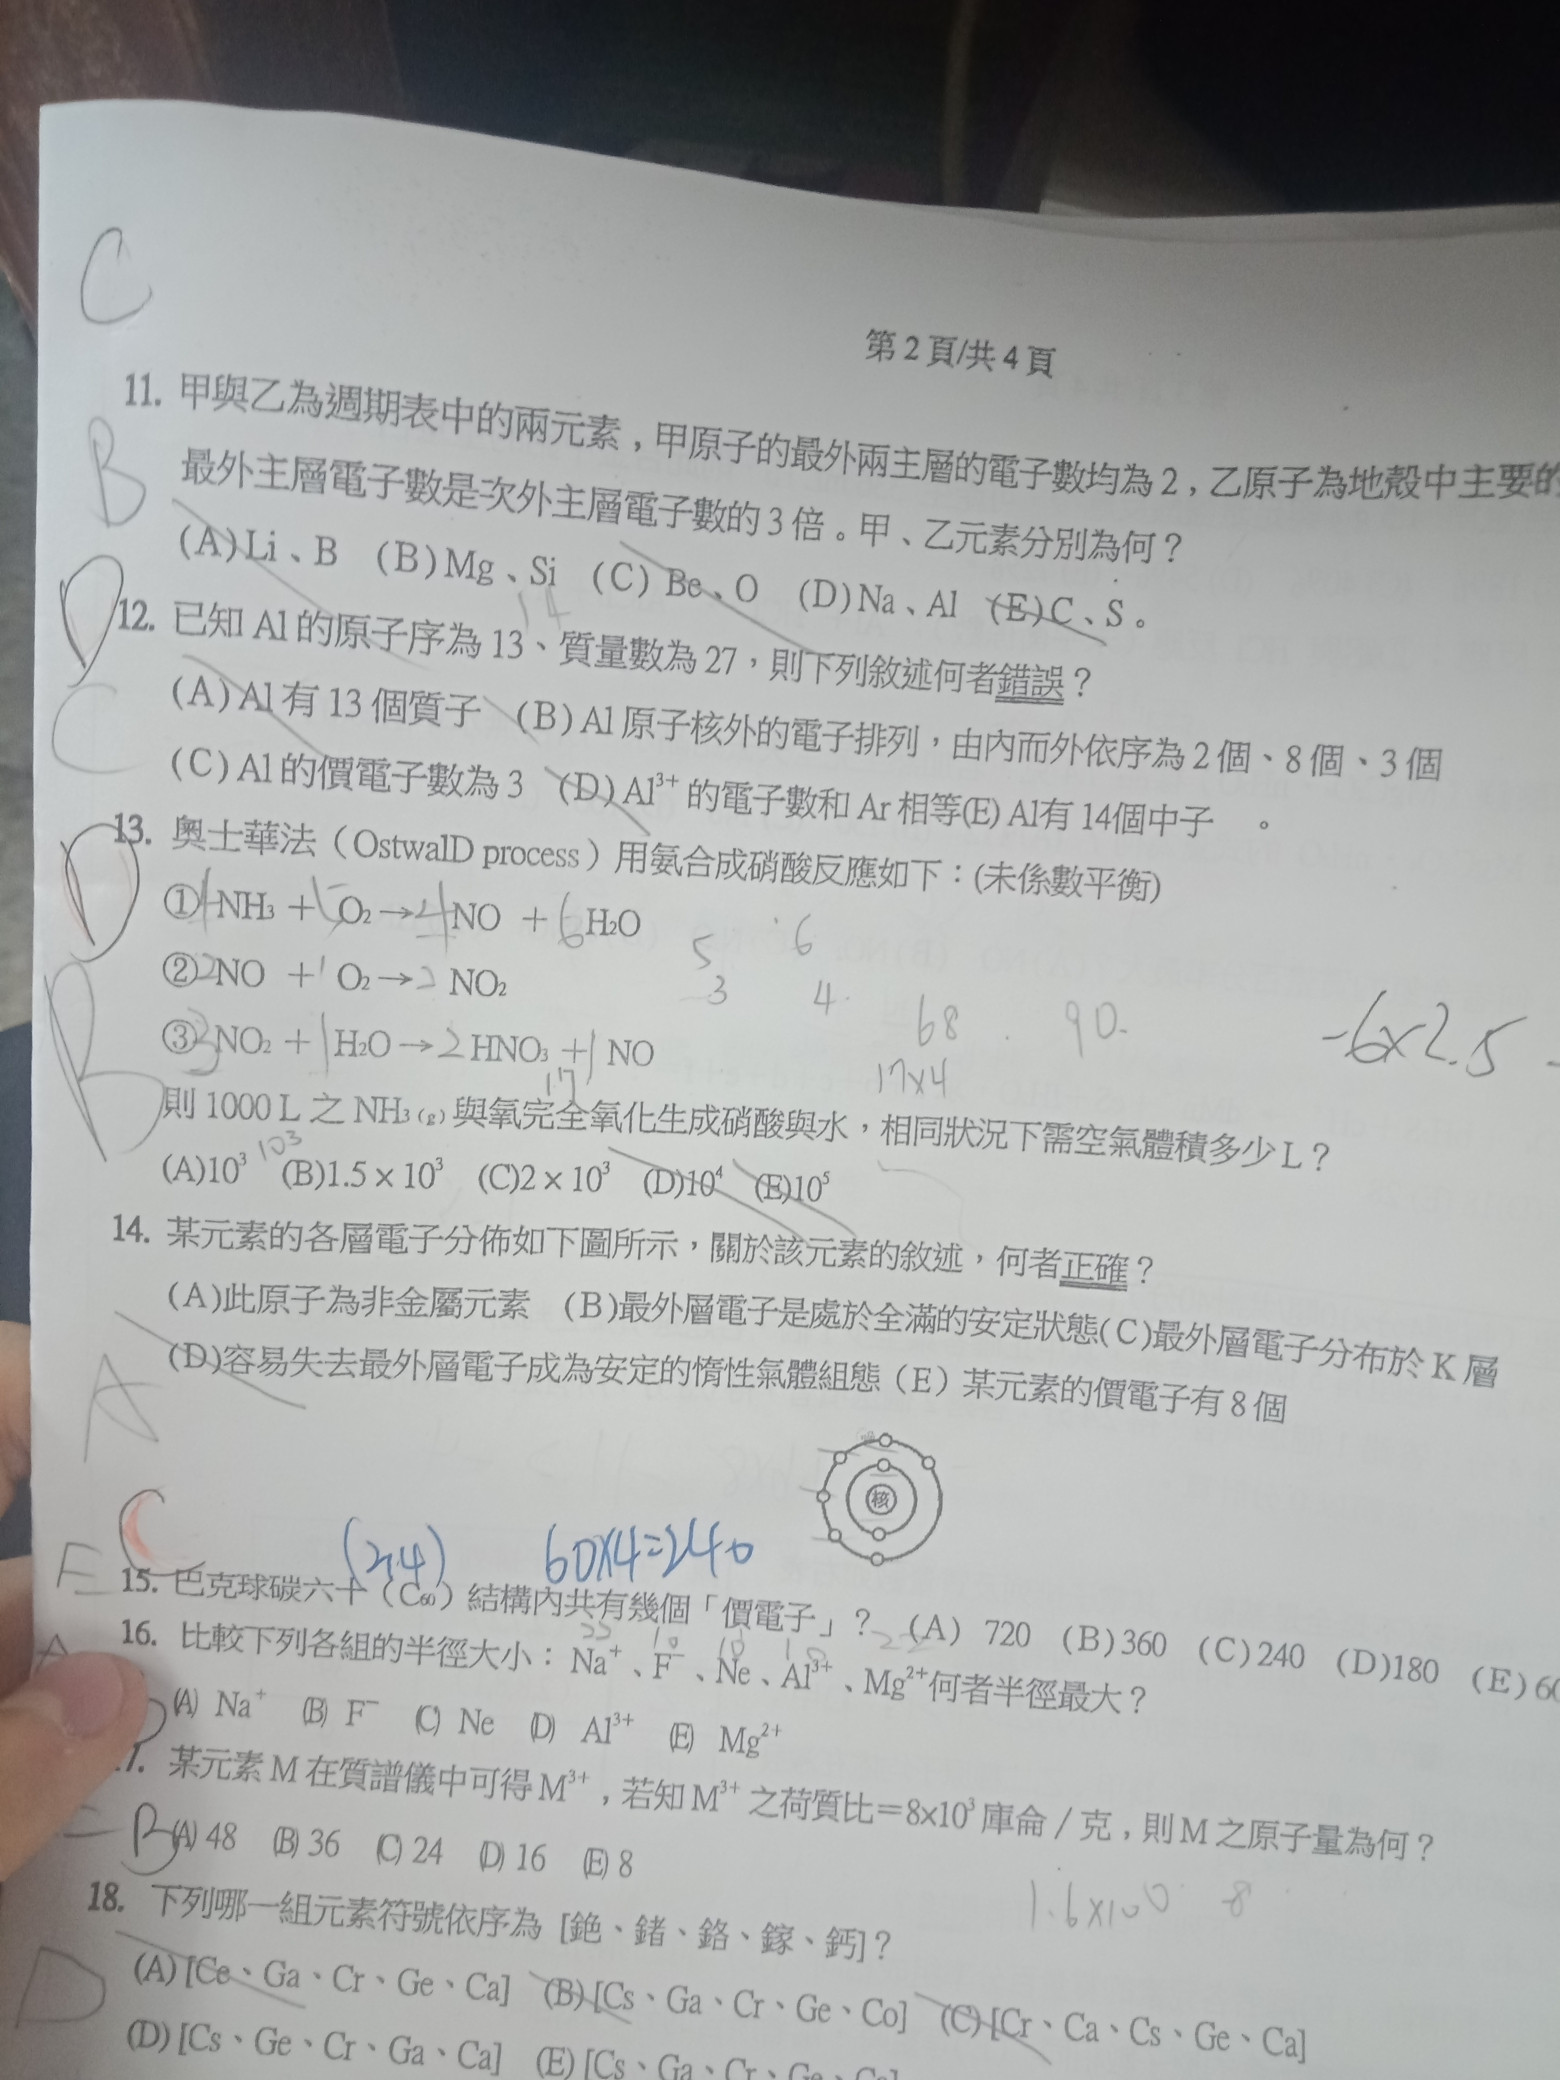 C
第2頁/共4頁
11. 甲與乙為週期表中的兩元素，甲原子的最外兩主層的電子數均為2，乙原子為地殼中主要的
B
最外主層電子數是次外主層電子數的3倍。甲、乙元素分別為何？
(A)Li、B (B)Mg、Si (C) Be、O (D)Na、Al (E)C、S。
14
D
12. 已知Al的原子序為13、質量數為27，則下列敘述何者錯誤？
(A)Al有13個質子 (B)Al原子核外的電子排列，由內而外依序為2個、8個、3個
C
(C)Al的價電子數為3 (D)Al³⁺的電子數和Ar相等(E) Al有14個中子 。
13. 奧士華法（OstwalD process）用氨合成硝酸反應如下：(未係數平衡)
D
①4NH₃ + 5O₂→4NO + 6H₂O
5 6
②2NO + 1O₂→2NO₂
3 4
③3NO₂ + 1H₂O→2HNO₃ + 1NO
68 90
-6x2.5
17 17x4
B
則1000 L之NH₃(g)與氧完全氧化生成硝酸與水，相同狀況下需空氣體積多少L？
10³
(A)10³ (B)1.5×10³ (C)2×10³ (D)10⁴ (E)10⁵
14. 某元素的各層電子分佈如下圖所示，關於該元素的敘述，何者正確？
(A)此原子為非金屬元素 (B)最外層電子是處於全滿的安定狀態(C)最外層電子分布於K層
A
(D)容易失去最外層電子成為安定的惰性氣體組態（E）某元素的價電子有8個
核
C
(2,4) 60x4=240
E
15. 巴克球碳六十（C₆₀）結構內共有幾個「價電子」？ (A) 720 (B)360 (C)240 (D)180 (E)60
10 10
16. 比較下列各組的半徑大小：Na⁺、F⁻、Ne、Al³⁺、Mg²⁺何者半徑最大？
A
(A) Na⁺ (B) F⁻ (C) Ne (D) Al³⁺ (E) Mg²⁺
7. 某元素M在質譜儀中可得M³⁺，若知M³⁺之荷質比＝8×10³庫侖/克，則M之原子量為何？
B
(A) 48 (B) 36 (C) 24 (D) 16 (E) 8
1.6x100 8
18. 下列哪一組元素符號依序為 [銫、鍺、鉻、鎵、鈣]？
(A)[Ce、Ga、Cr、Ge、Ca] (B)[Cs、Ga、Cr、Ge、Co] (C)[Cr、Ca、Cs、Ge、Ca]
D
(D)[Cs、Ge、Cr、Ga、Ca] (E)[Cs、Ga、Cr、Ge